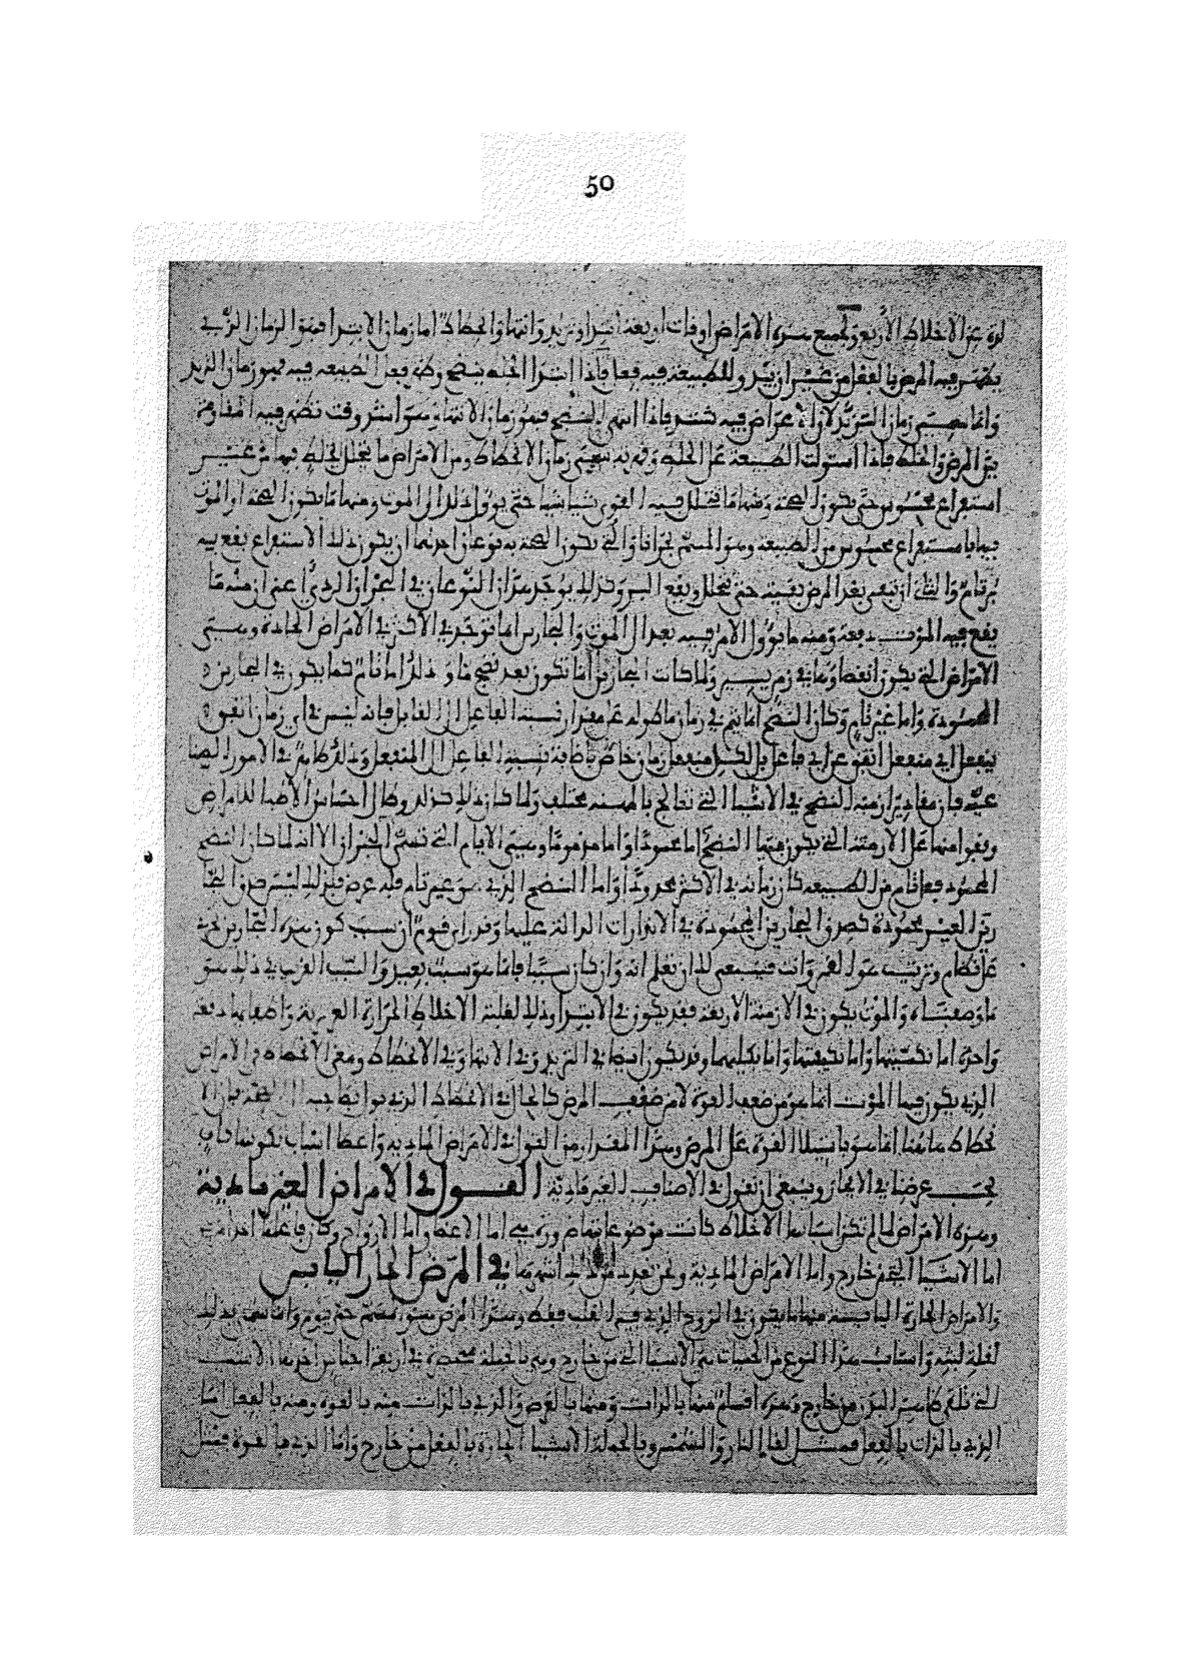 50
لدة عن الاخلاط الأربعة ولجميع هذه الامراض اوقات اربعة ابتدا وتزيد وانتها وانحطاط اما زمان الابتدا فهو الزمان الذي
يظهر فيه المرض بالفعل من غير ان يبدو للطبيعة فيه فعل فاذا ابتدا الخلط ينضج وظهر فعل الطبيعة فيه فهو زمان التزيد
وانما سمي زمان التزيد لان الاعراض فيه تشتد فاذا انتهى النضج فهو زمان الانتها وهو اشد وقت تظهر فيه المقاومة
بين المرض والخلط فاذا استولت الطبيعة على الخلط وقهرته سمي زمان الانحطاط ومن الامراض ما يتحلل الخلط فيها من غير
استفراغ محسوس حتى تكون الصحة ومنها ما تتحلل فيه القوى شيا شيا حتى يوول ذلك الى الموت ومنها ما تكون الصحة او الموت
فيها باستفراغ محسوس من الطبيعة وهو المسمى بحرانا والتي تكون الصحة به نوعان احدهما ان يكون ذلك الاستفراغ يقع به
بر تام والثاني ان تبقى بعد المرض بقية حتى تتحلل ويقع البر وكذلك يوجد هذان النوعان في البحران الردي اعني ان منه ما
يقع فيه الموت دفعة ومنه ما يوول الامر فيه بعد الى الموت والبحارين انما توجد في الاكثر في الامراض الحادة وهي
الامراض التي يكون انقضاوها في زمن يسير ولما كانت البحارين انما تكون بعد نضج ما وذلك اما تام كما يكون في البحارين
المحمودة واما غير تام وكان النضج انما يتم في زمان ما طوله على مقدار نسبة الفاعل الى القابل فانه ليس في اي زمان اتفق
ينفعل اي منفعل اتفق عن اي فاعل بل لكل منفعل زمان خاص باضافة نسبة الفاعل الى المنفعل وذلك ظاهر في الامور الصنا
عية فان مقادير ازمنة النضج في الاشيا التي تعالج بالمهنة مختلف ولما كان ذلك كذلك وطال احساس الاطبا للامراض
وقفوا منها على الازمنة التي يكون فيها النضج اما محمودا واما مذموما وهي الايام التي تسمى البحران الا انه لما كان النضج
المحمود فعل تام من الطبيعة كان زمانه في الاكثر محدودا واما النضج الذي هو غير تام فله عرض فلذلك ليس توجد البحا
رين الغير محمودة تحصر والبحارين المحمودة في الانذارات الدالة عليها وقد راى قوم ان سبب كون هذه البحارين تجري
على نظام وترتيب هو القمر وانت فينبغي لك ان تعلم انه وان كان سببا فانما هو سبب بعيد والسبب القريب في ذلك هو
ما وصفناه والموت يكون في الازمنة الاربعة فقد يكون في الابتدا وذلك لغلبة الاخلاط الحرارة الغريزية واطفائها دفعة
واحدة اما بكميتها واما بكيفيتها واما بكليهما وقد يكون ايضا في التزيد وفي الانتها وفي الانحطاط ومعنى الانحطاط في الامراض
الذي يكون فيها الموت انما هو من ضعف القوة لا من ضعف المرض كالحال في الانحطاط الذي يوول صاحبه الى الصحة فان الا
نحطاط هاهنا انما هو باستيلا القوة على المرض وهذا المقدار من القول في الامراض المادية واعطا اسباب تكونها كاف
بحسب غرضنا في الايجاز وينبغي ان نقول في الاصناف الغير مادية القول في الامراض الغير مادية
وهذه الامراض لما لم تكن اسبابها الاخلاط كانت موضوعاتها ضرورة هي اما الاعضا واما الارواح وكان فاعلها احد امرين
اما الاشيا التي من خارج واما الامراض المادية ونحن نعدد من ذلك اشهرها في المرض الحار اليابس
والامراض الحارة اليابسة منها ما يكون في الروح الذي في القلب فقط وهذا المرض هو المسمى حمى يوم وانما سمي بذلك
لقلة لبثه واسباب هذا النوع من الحميات هي الاشيا التي من خارج وهي بالجملة منحصرة في اربعة اجناس احدها الاشيا
التي تلقى ظاهر البدن من خارج وهذه اقسام منها بالذات ومنها بالعرض والذي بالذات منه بالقوة ومنه بالفعل اما
الذي بالذات بالفعل فمثل لقا النار والشمس وبالجملة الاشيا الحارة بالفعل من خارج واما الذي بالقوة فمثل